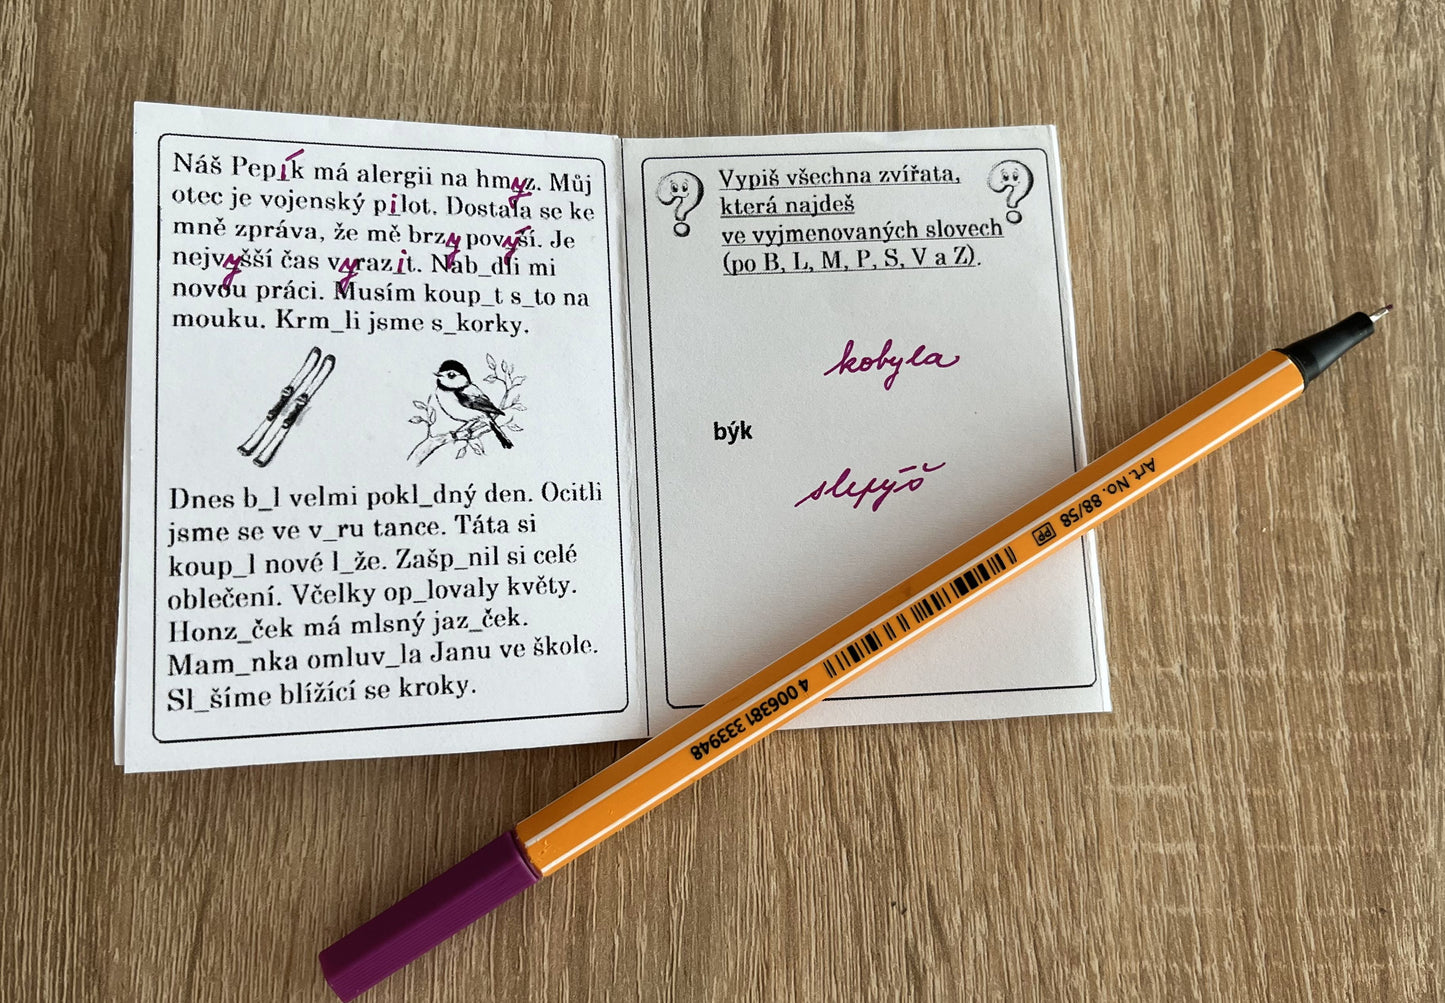 Náš Pepík má alergii na hmyz. Můj
otec je vojenský pilot. Dostala se ke
mně zpráva, že mě brzy povýší. Je
nejvyšší čas vyrazit. Nab_dli mi
novou práci. Musím koup_t s_to na
mouku. Krm_li jsme s_korky.
Dnes b_l velmi pokl_dný den. Ocitli
jsme se ve v_ru tance. Táta si
koup_l nové l_že. Zašp_nil si celé
oblečení. Včelky op_lovaly květy.
Honz_ček má mlsný jaz_ček.
Mam_nka omluv_la Janu ve škole.
Sl_šíme blížící se kroky.
Vypiš všechna zvířata,
která najdeš
ve vyjmenovaných slovech
(po B, L, M, P, S, V a Z).
kobyla
býk
slepýš
Art. No. 88/58
PP
4 006381 333948